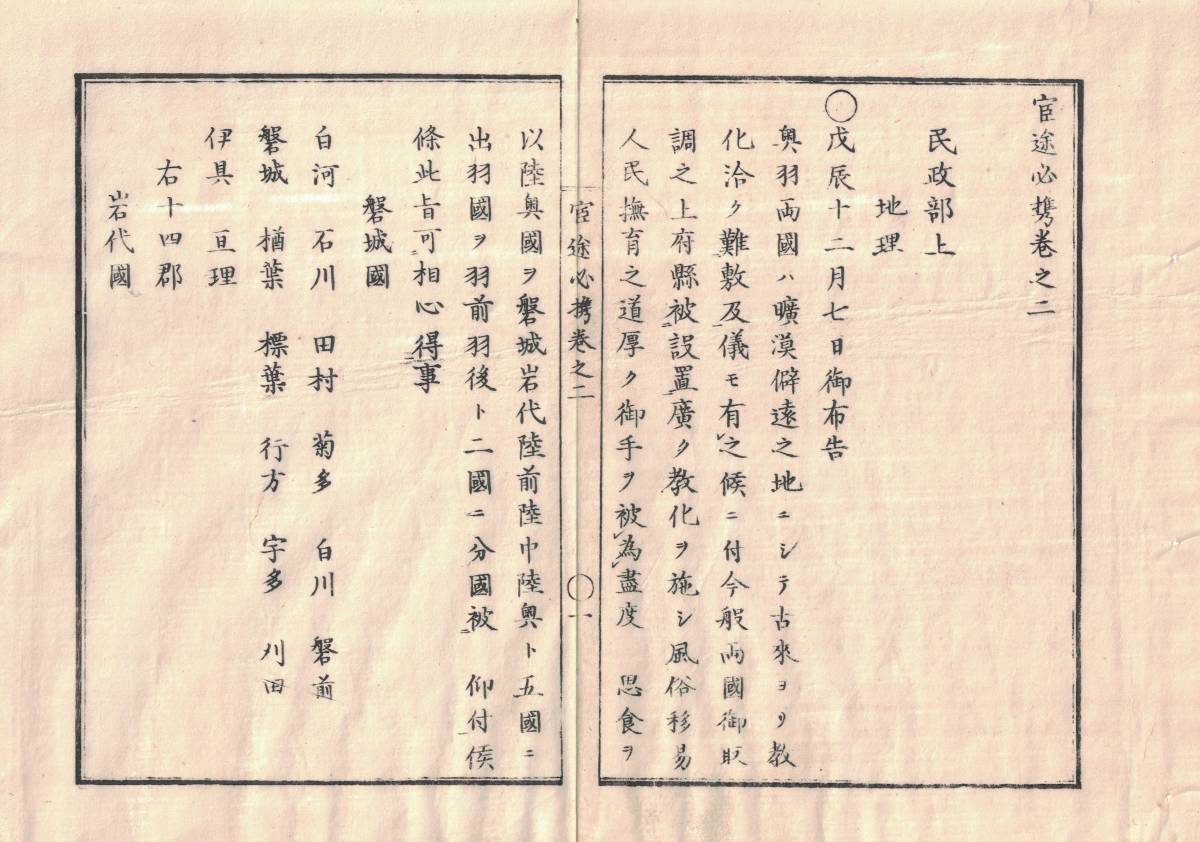 宦途必携巻之二
民政部上
地理
○戊辰十二月七日御布告
奥羽両國ハ曠漠僻遠之地ニシテ古來ヨリ教
化洽ク難敷及儀モ有之候ニ付今般両國御取
調之上府縣被設置廣ク教化ヲ施シ風俗移易
人民撫育之道厚ク御手ヲ被為盡度　思食ヲ
宦途必携巻之二　○一
以陸奥國ヲ磐城岩代陸前陸中陸奥ト五國ニ
出羽國ヲ羽前羽後ト二國ニ分國被　仰付候
條此旨可相心得事
磐城國
白河　石川　田村　菊多　白川　磐前
磐城　楢葉　標葉　行方　宇多　刈田
伊具　亘理
右十四郡
岩代國